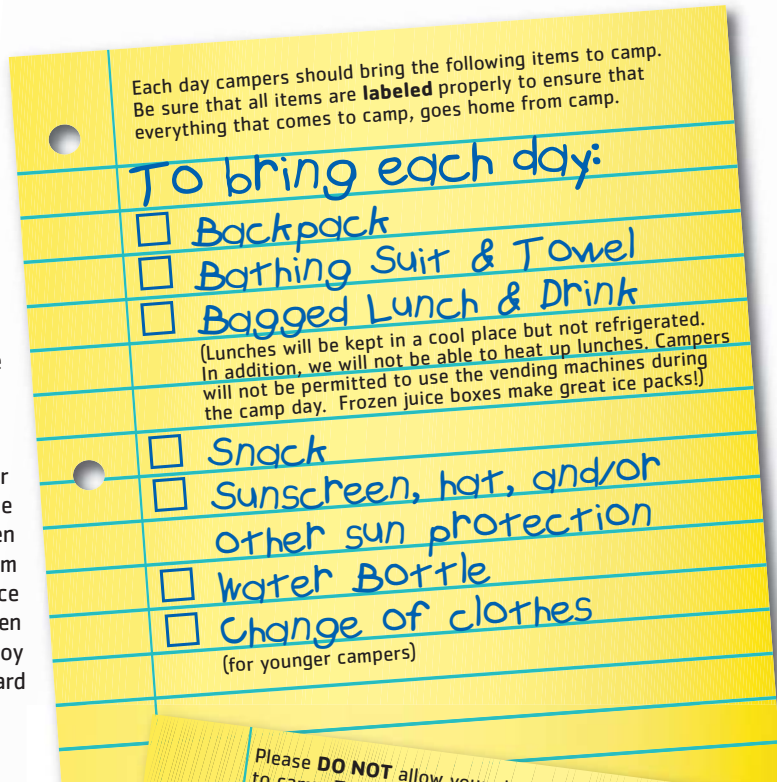 Each day campers should bring the following items to camp.
Be sure that all items are labeled properly to ensure that
everything that comes to camp, goes home from camp.
To bring each day:
Backpack
Bathing Suit & Towel
Bagged Lunch & Drink
(Lunches will be kept in a cool place but not refrigerated.
In addition, we will not be able to heat up lunches. Campers
will not be permitted to use the vending machines during
the camp day. Frozen juice boxes make great ice packs!)
Snack
Sunscreen, hat, and/or
other sun protection
Water Bottle
Change of clothes
(for younger campers)
Please DO NOT allow